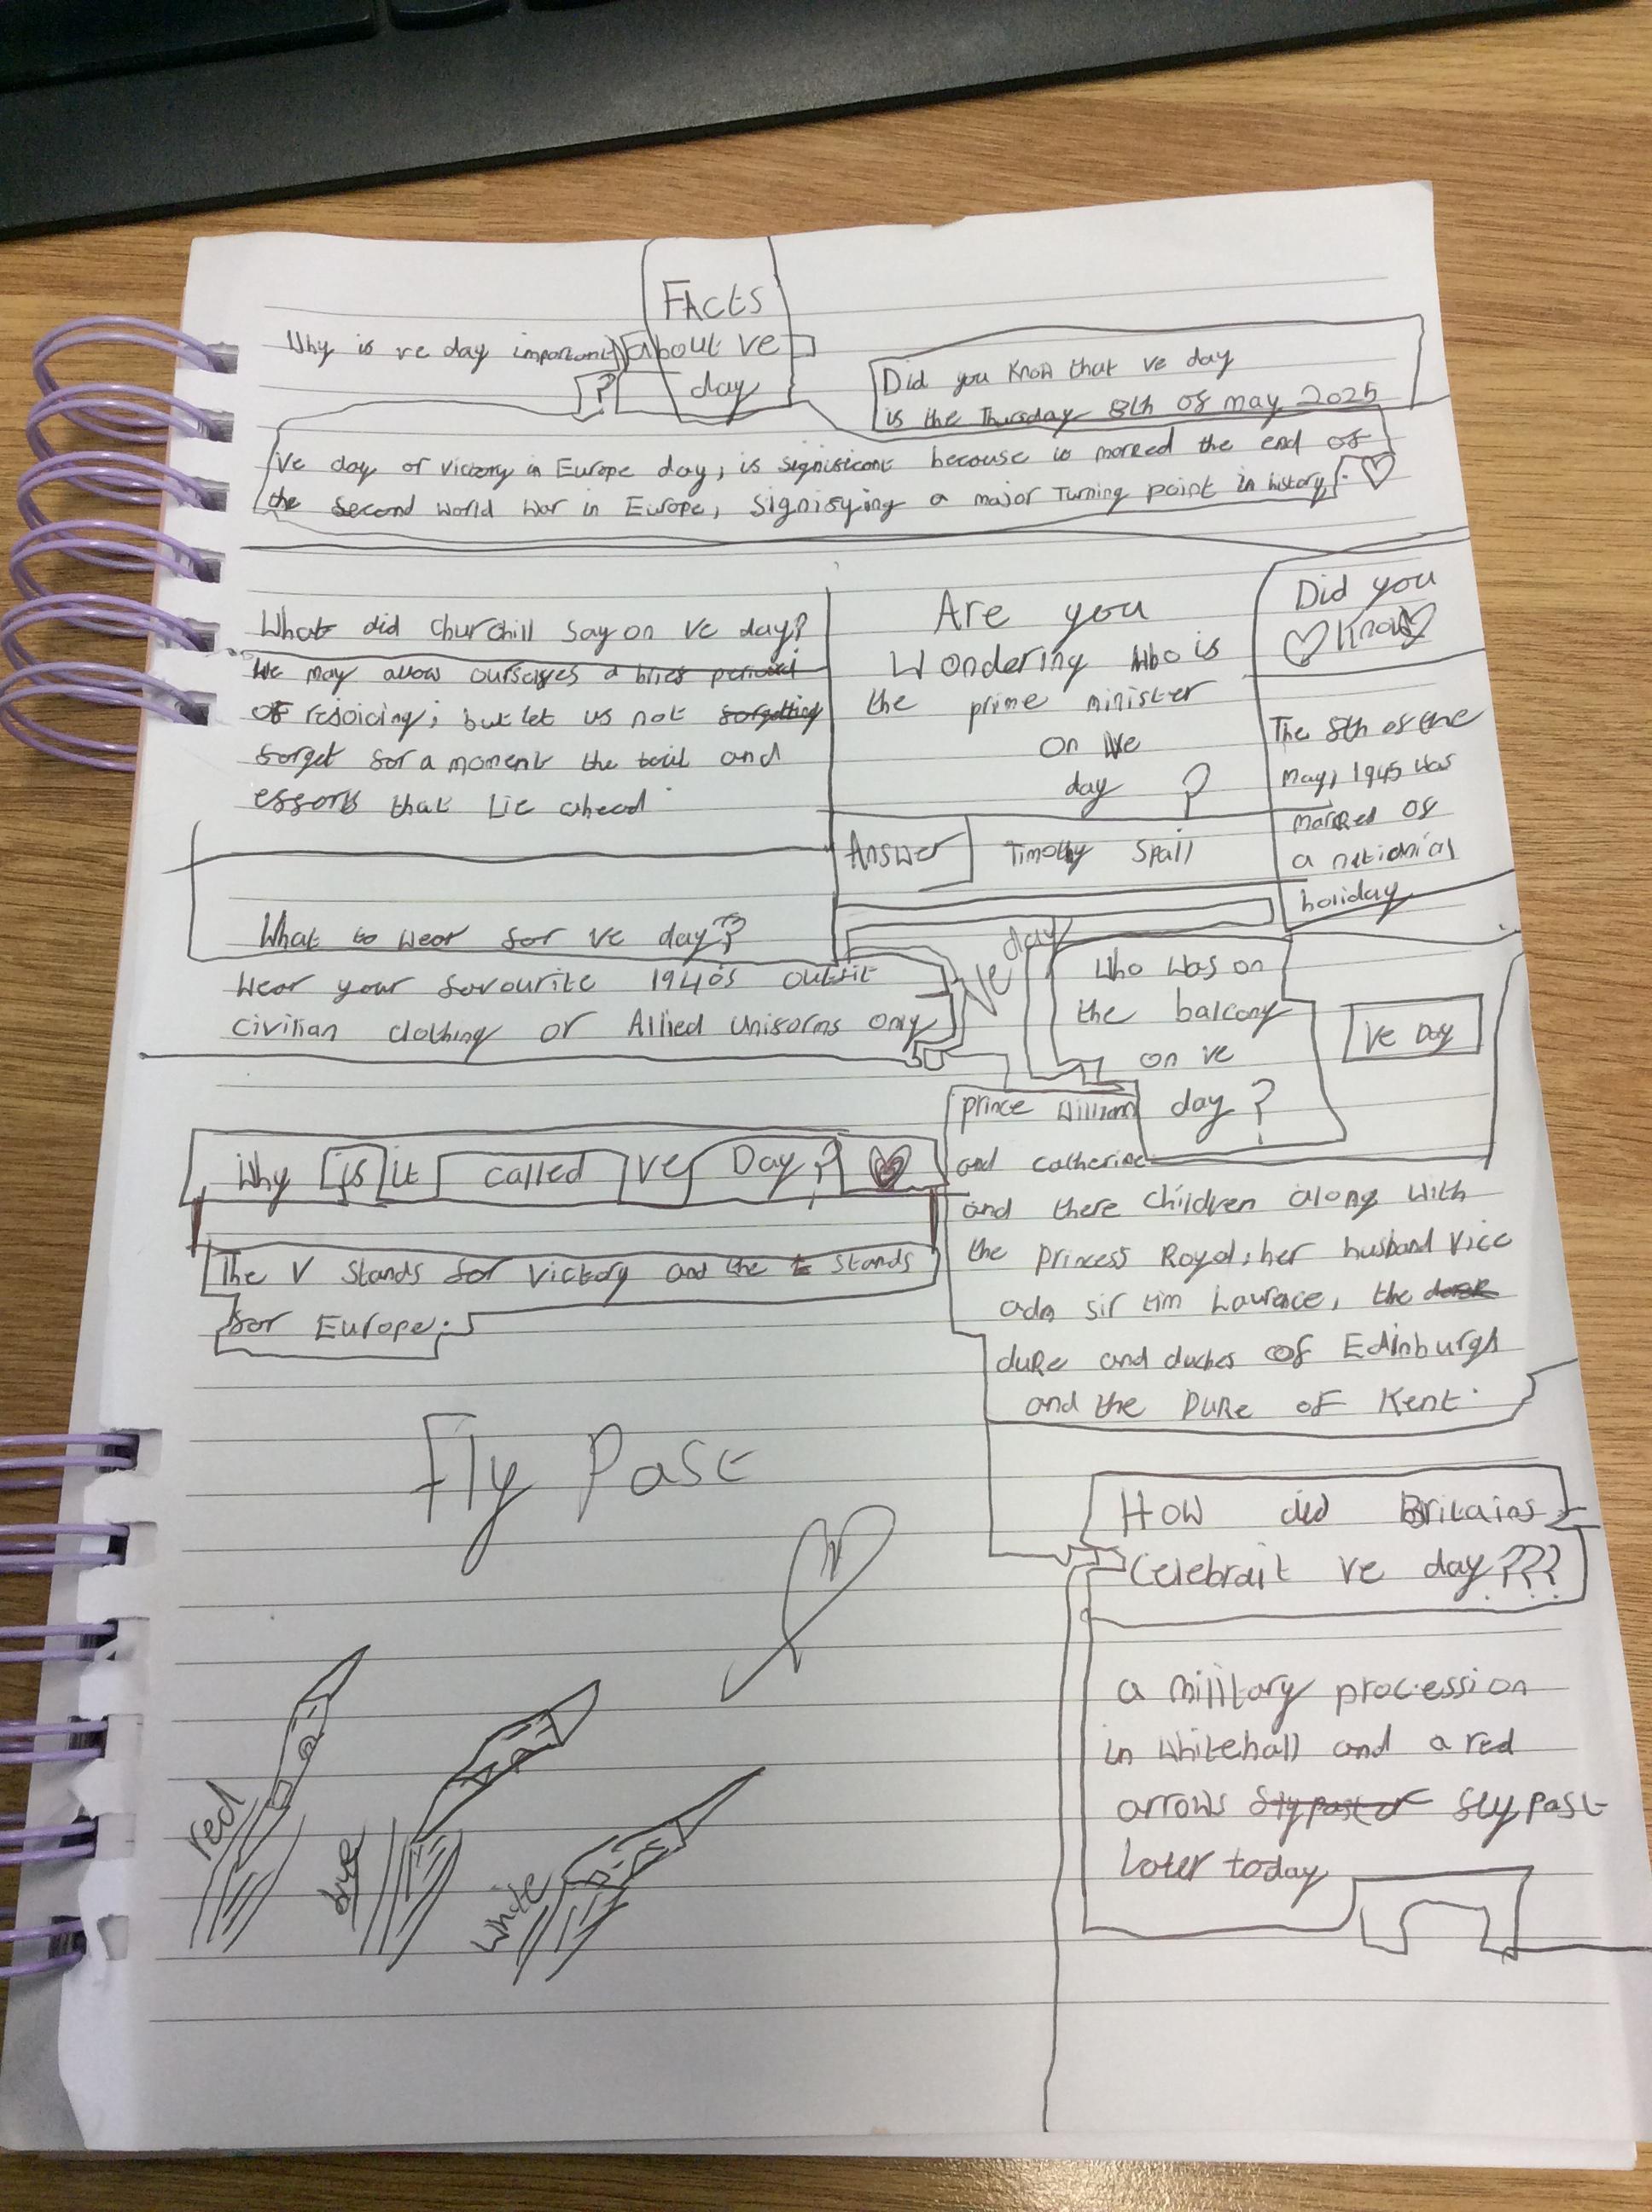 Facts
about ve
day
Why is ve day important
?
Did you know that ve day
is the Thursday 8th of may 2025
Ve day or victory in Europe day, is significant because is marked the end of
the second world war in Europe, signifying a major turning point in history.
What did Churchill say on ve day?
We may allow ourselves a brief period
of rejoicing; but let us not forgetting
forget for a moment the toil and
efforts that lie ahead
Are you
wondering who is
the prime minister
on ve
day ?
Answer Timothy Spall
Did you
know
The 8th of the
may, 1945 was
marked of
a nationial
holiday
What to wear for ve day??
Wear your favourite 1940s outfit
civilian clothing or Allied uniforms only
ve day
who was on
the balcony
on ve
day ?
Ve Day
prince William
and catherine
and there children along with
the princess Royal, her husband vice
adm sir tim Laurence, the
duke and duches of Edinburgh
and the Duke of Kent.
Why is it called ve Day?
The V stands for victory and the E stands
for Europe.
Fly Past
red
blue
white
How did Britains
celebrait ve day???
a military procession
in whitehall and a red
arrows flypast flypast
later today